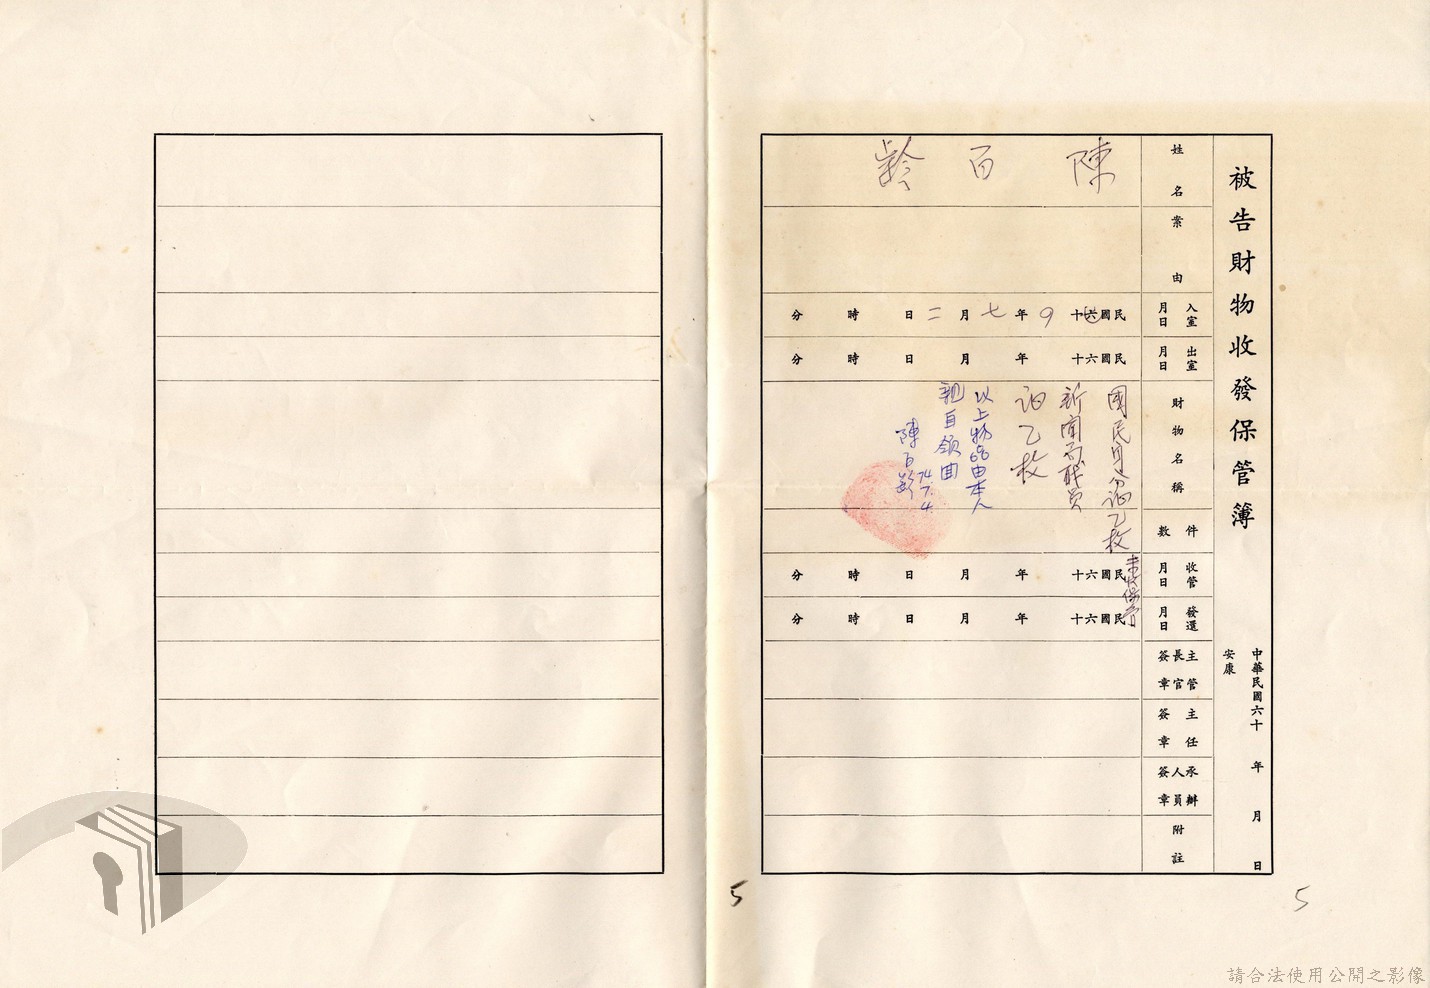 被告財物收發保管簿
中華民國六十 年 月 日
安康
姓名
陳百齡
案由
入室月日
民國六十 年七月二日 時 分
出室月日
民國六十 年 月 日 時 分
財物名稱
國民身分証乙枚
新聞局職員
証乙枚
以上物品由本人
親自領回
74.7.4
陳百齡
件數
收管月日
民國六十 年 月 日 時 分
發還月日
民國六十 年 月 日 時 分
主管長官簽章
主任簽章
承辦人員簽章
附註
5
5
請合法使用公開之影像